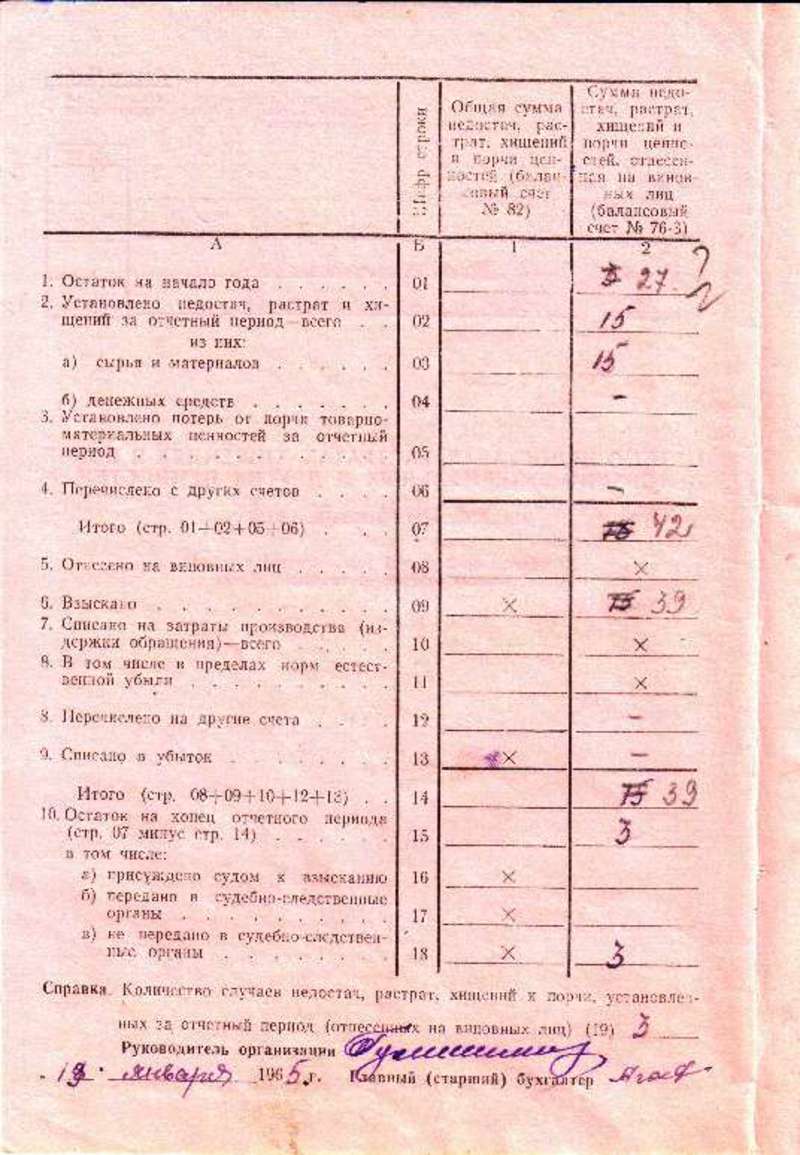 Шифр строки
Общая сумма
недостач, рас-
трат, хищений
и порчи цен-
ностей (балан-
совый счет
№ 82)
Сумма недо-
стач, растрат,
хищений и
порчи ценно-
стей, отнесен-
ная на винов-
ных лиц
(балансовый
счет № 76-3)
А Б 1 2
1. Остаток на начало года . . . . . . 01 27 ?
2. Установлено недостач, растрат и хи-
щений за отчетный период—всего . . 02 15
из них:
а) сырья и материалов . . . . . . 03 15
б) денежных средств . . . . . . . 04 –
3. Установлено потерь от порчи товарно-
материальных ценностей за отчетный
период . . . . . . . . . . . 05
4. Перечислено с других счетов . . . . 06 –
Итого (стр. 01+02+05+06) . . . 07 42
5. Отнесено на виновных лиц . . . . . 08 ×
6. Взыскано . . . . . . . . . . 09 × 39
7. Списано на затраты производства (из-
держки обращения)—всего . . . . . 10 ×
8. В том числе в пределах норм естест-
венной убыли . . . . . . . . . 11 ×
8. Перечислено на другие счета . . . . 12 –
9. Списано в убыток . . . . . . . . 13 × –
Итого (стр. 08+09+10+12+13) . . 14 39
10. Остаток на конец отчетного периода
(стр. 07 минус стр. 14) . . . . . . 15 3
в том числе:
а) присуждено судом к взысканию 16 ×
б) передано в судебно-следственные
органы . . . . . . . . . . 17 ×
в) не передано в судебно-следствен-
ные органы . . . . . . . . 18 × 3
Справка. Количество случаев недостач, растрат, хищений и порчи, установлен-
ных за отчетный период (отнесенных на виновных лиц) (19) 3
Руководитель организации
января 1965 г. Главный (старший) бухгалтер